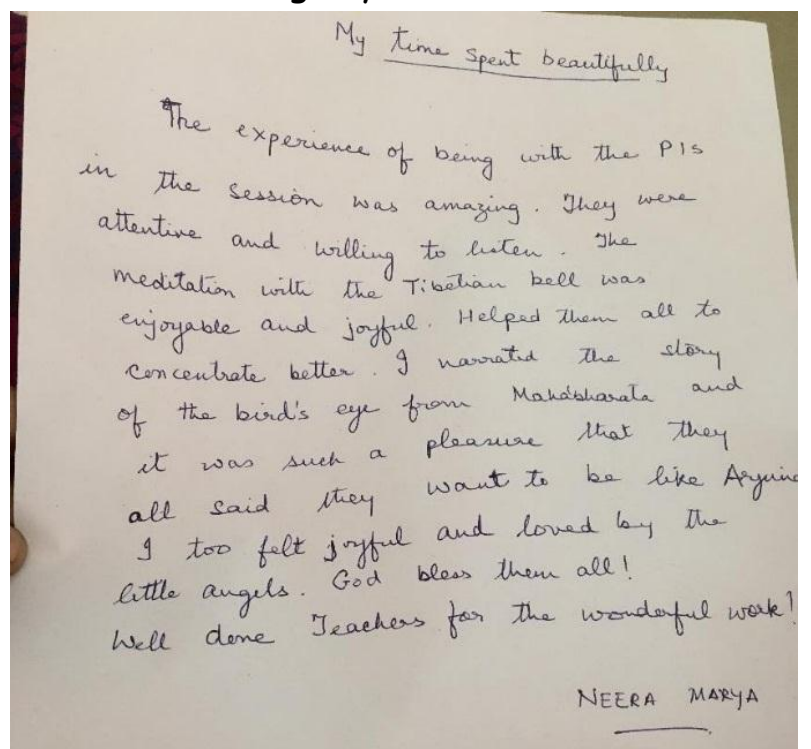 My time spent beautifully
The experience of being with the P1s
in the session was amazing. They were
attentive and willing to listen. The
meditation with the Tibetian bell was
enjoyable and joyful. Helped them all to
concentrate better. I narrated the story
of the bird's eye from Mahabharata and
it was such a pleasure that they
all said they want to be like Arjuna
I too felt joyful and loved by the
little angels. God bless them all!
Well done Teachers for the wonderful work!
NEERA MARYA